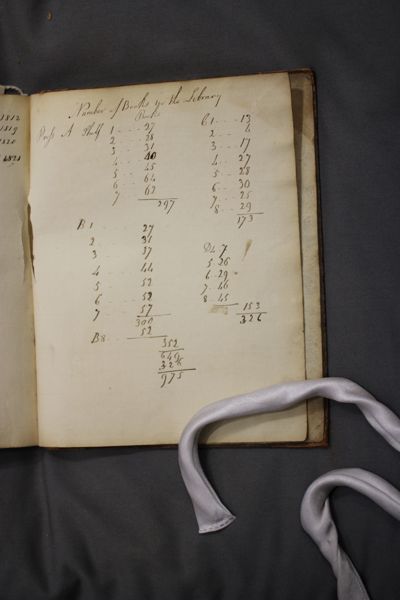 1812
1819
1820
1821
Number of Books in the Library
Books
Press A Shelf 1 .... 27
2 ... 28
3 ... 31
4 ... 40
5 ... 45
6 ... 64
7 ... 62
297
B 1 ... 27
2 ... 31
3 ... 37
4 ... 44
5 ... 52
6 ... 52
7 ... 57
300
B8 ... 52
352
649
326
975
C 1 ... 13
2 ... 4
3 ... 17
4 ... 27
5 ... 28
6 ... 30
7 ... 25
8 ... 29
173
D4 7
5 .. 26
6 .. 29
7 .. 46
8 .. 45
153
326